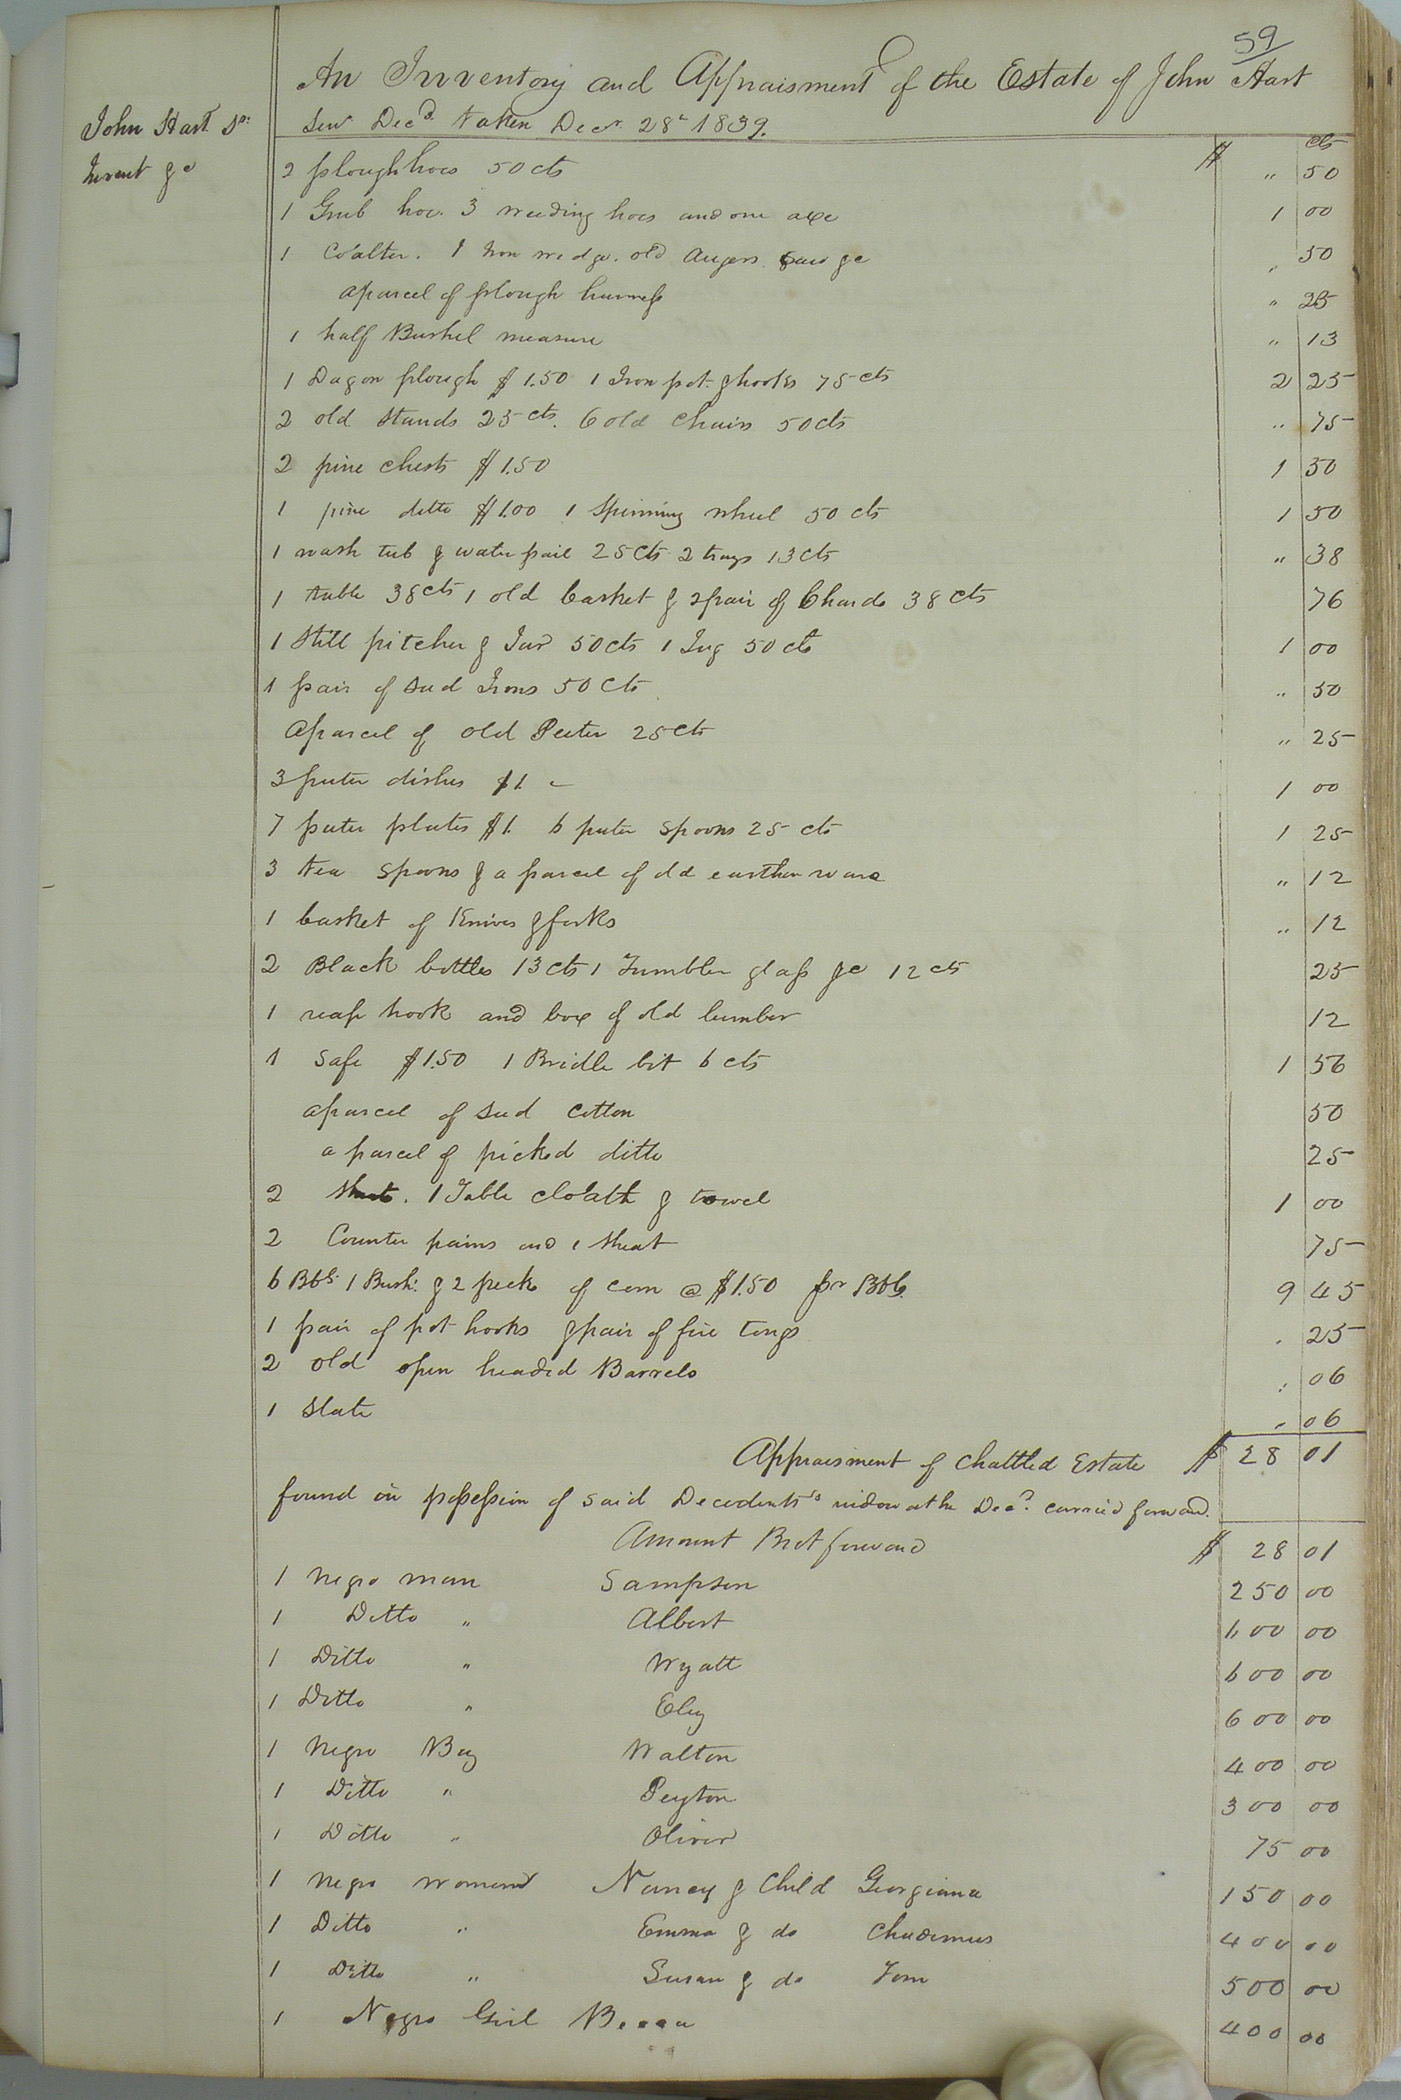 59
An Inventory and Appraisment of the Estate of John Hart
Senr Decd taken Decr 28th 1839.
John Hart Sr
Invent &c
$ cts
2 plough hoes 50 cts " 50
1 Grub hoe. 3 weeding hoes and one axe 1 00
1 Coalter. 1 Iron wedge. old Augers. &c " 50
a parcel of plough harness " 25
1 half Bushel measure " 13
1 Dagon plough $1.50 1 Iron pot & hooks 75 cts 2 25
2 old Stands 25 cts. 6 old Chairs 50 cts " 75
2 pine chests $1.50 1 50
1 pine ditto $1.00 1 Spinning wheel 50 cts 1 50
1 wash tub & water pail 25 Cts 2 trays 13 Cts " 38
1 table 38 cts 1 old basket & 2 pair of Chards 38 cts 76
1 Still pitcher & Jar 50 cts 1 Jug 50 cts 1 00
1 pair of Sad Irons 50 Cts " 50
a parcel of old Peuter 25 cts " 25
3 puter dishes $1. 1 00
7 puter plates $1. 6 puter Spoons 25 cts 1 25
3 tea Spoons & a parcel of old earthen ware " 12
1 basket of Knives & forks " 12
2 Black bottles 13 cts 1 Tumbler glass &c 12 cts 25
1 reap hook and box of old lumber 12
1 Safe $1.50 1 Bridle bit 6 cts 1 56
a parcel of Sead Cotton 50
a parcel of picked ditto 25
2 1 Table cloath & towel 1 00
2 Counter pains and 1 Sheat 75
6 Bbls. 1 Bush. & 2 pecks of corn @ $1.50 pr Bbls. 9 45
1 pair of pot hooks & pair of fire tongs . 25
2 old open headed Barrels : 06
1 Slate . 06
Appraisment of Chattled Estate $ 28 01
found in possession of Said Decedents widow at he Decd. carried forward.
Amount Brot forward $ 28 01
1 Negro man Sampson 250 00
1 Ditto " Albert 600 00
1 Ditto " Wyatt 600 00
1 Ditto " Eley 600 00
1 Negro Boy Walton 400 00
1 Ditto " Peyton 300 00
1 Ditto " Oliver 75 00
1 Negro Womand Nancy & Child Georgiana 150 00
1 Ditto " Emma & do 400 00
1 Ditto " Susan & do Tom 500 00
1 Negro Girl 400 00